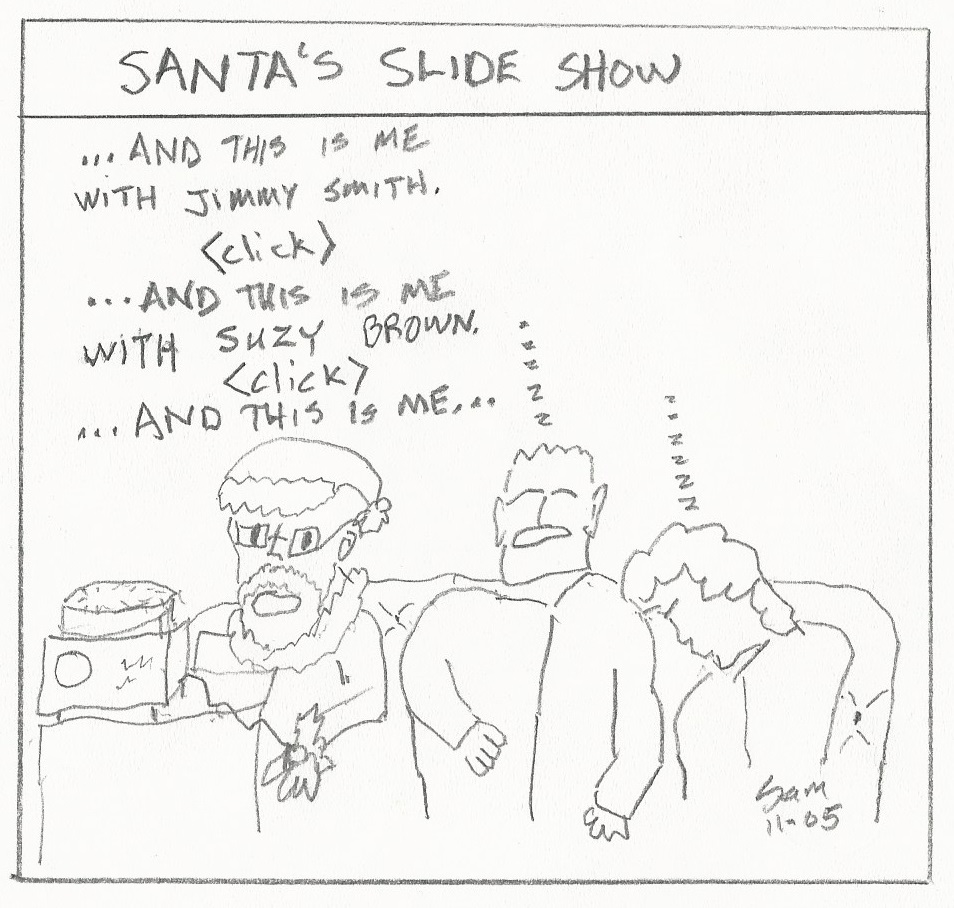 SANTA'S SLIDE SHOW
...AND THIS IS ME
WITH JIMMY SMITH.
<click>
...AND THIS IS ME
WITH SUZY BROWN.
<click>
...AND THIS IS ME...
z z z z z
z z z z z z
Sam
11-05